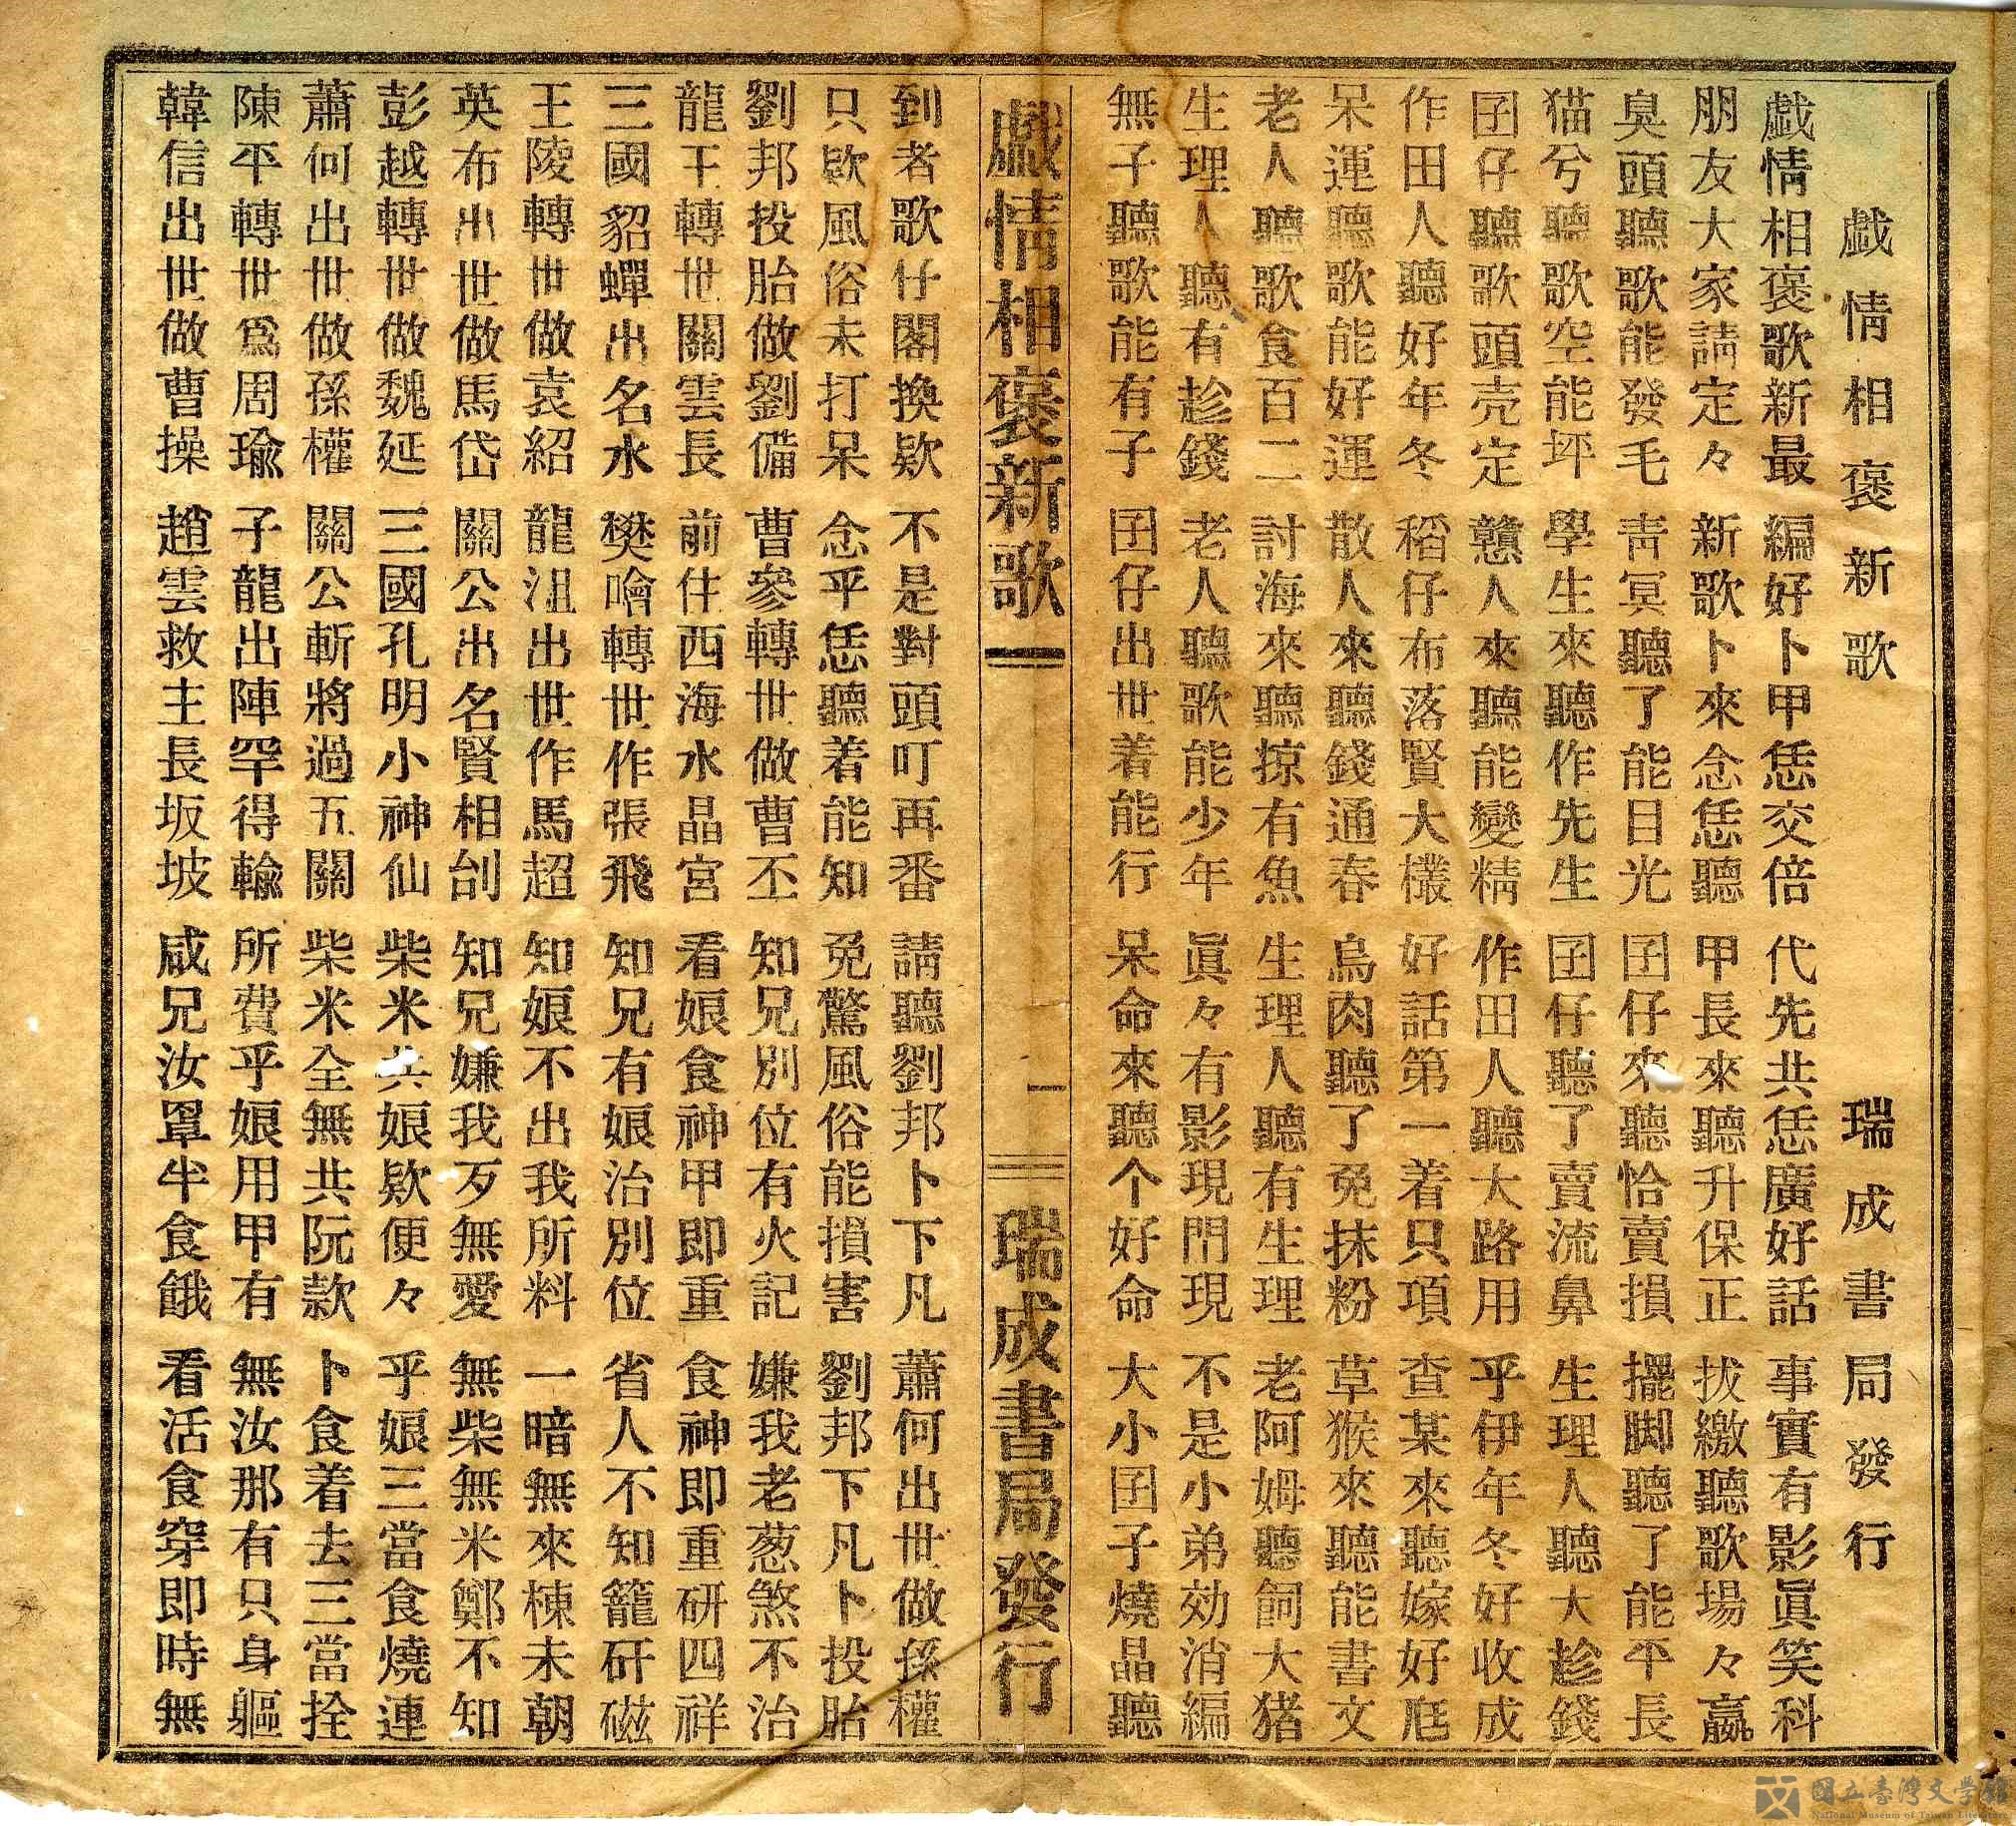 戯情相褒新歌　瑞成書局發行
戯情相褒歌新最　編好卜甲恁交倍　代先共恁廣好話　事實有影眞笑科
朋友大家請定々　新歌卜來念恁聽　甲長來聽升保正　拔繳聽歌場々贏
臭頭聽歌能發毛　靑冥聽了能目光　囝仔來聽恰賣損　擺脚聽了能平長
猫兮聽歌空能坪　學生來聽作先生　囝仔聽了賣流鼻　生理人聽大趁錢
囝仔聽歌頭壳定　戇人來聽能變精　作田人聽大路用　乎伊年冬好收成
作田人聽好年冬　稻仔布落賢大欉　好話第一着只項　查某來聽嫁好尫
呆運聽歌能好運　散人來聽錢通春　烏肉聽了免抹粉　草猴來聽能書文
老人聽歌食百二　討海來聽掠有魚　生理人聽有生理　老阿姆聽飼大猪
生理人聽有趁錢　老人聽歌能少年　眞々有影現門現　不是小弟効消編
無子聽歌能有子　囝仔出世着能行　呆命來聽个好命　大小囝子燒晶聽
戯情相褒新歌一　一　瑞成書局發行
到者歌仔閣換欵　不是對頭叮再番　請聽劉邦卜下凡　蕭何出世做孫權
只欵風俗未打呆　念乎恁聽着能知　免驚風俗能損害　劉邦下凡卜投胎
劉邦投胎做劉備　曹參轉世做曹丕　知兄別位有火記　嫌我老葱煞不治
龍王轉世關雲長　前住西海水晶宮　看娘食神甲即重　食神即重研四祥
三國貂蟬出名水　樊噲轉世作張飛　知兄有娘治別位　省人不知籠研磁
王陵轉世做袁紹　龍沮出世作馬超　知娘不出我所料　一暗無來棟未朝
英布出世做馬岱　關公出名賢相刣　知兄嫌我歹無愛　無柴無米鄭不知
彭越轉世做魏延　三國孔明小神仙　柴米共娘欵便々　乎娘三當食燒連
蕭何出世做孫權　關公斬將過五關　柴米全無共阮款　卜食着去三當拴
陳平轉世爲周瑜　子龍出陣罕得輸　所費乎娘用甲有　無汝那有只身軀
韓信出世做曹操　趙雲救主長坂坡　咸兄汝罩半食餓　看活食穿即時無
國立臺灣文學館
National Museum of Taiwan Literature